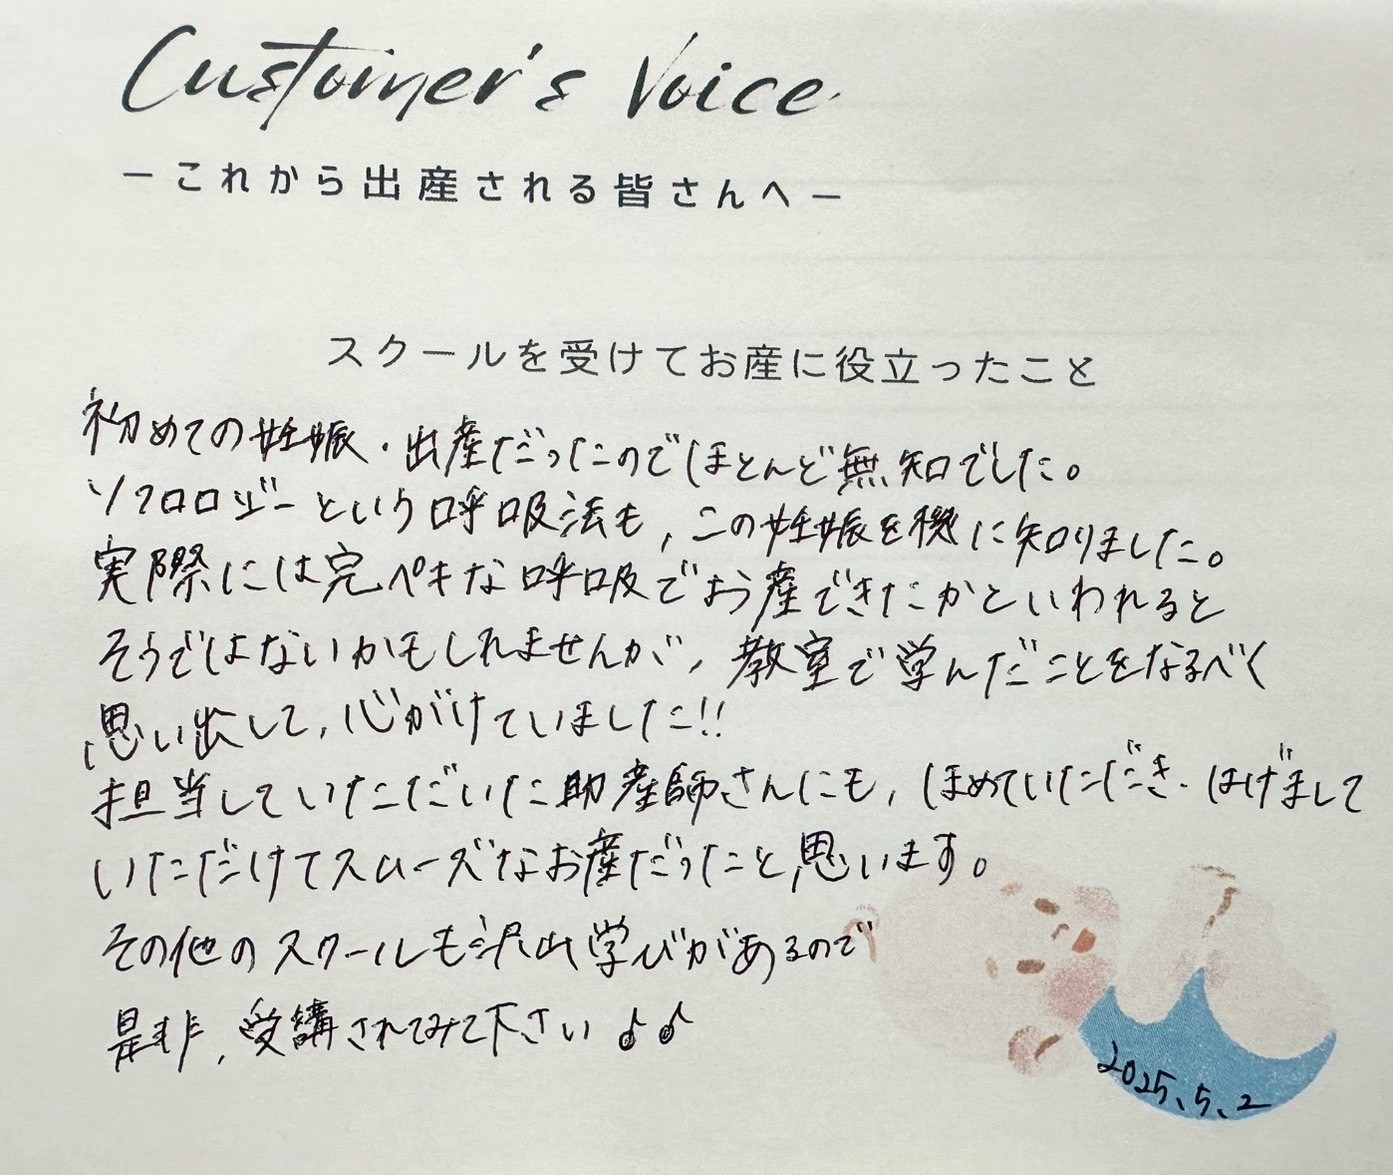 Customer's Voice
－これから出産される皆さんへ－
スクールを受けてお産に役立ったこと
初めての妊娠・出産だったのでほとんど無知でした。
ソフロロジーという呼吸法も、この妊娠を機に知りました。
実際には完ペキな呼吸でお産できたかといわれると
そうではないかもしれませんが、教室で学んだことをなるべく
思い出して、心がけていました!!
担当していただいた助産師さんにも、ほめていただき・はげまして
いただけてスムーズなお産だったと思います。
その他のスクールも沢山学びがあるので
是非、受講されてみて下さい♪♪
2025.5.2